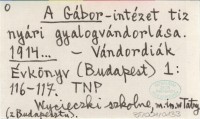 0
A Gábor-intézet tiz
nyári gyalogvándorlása.
1914... – Vándordiák
Évkönyv (Budapest) 1:
116-117. TNP
Wycieczki szkolne, m.in. w Tatry
(z Budapesztu).